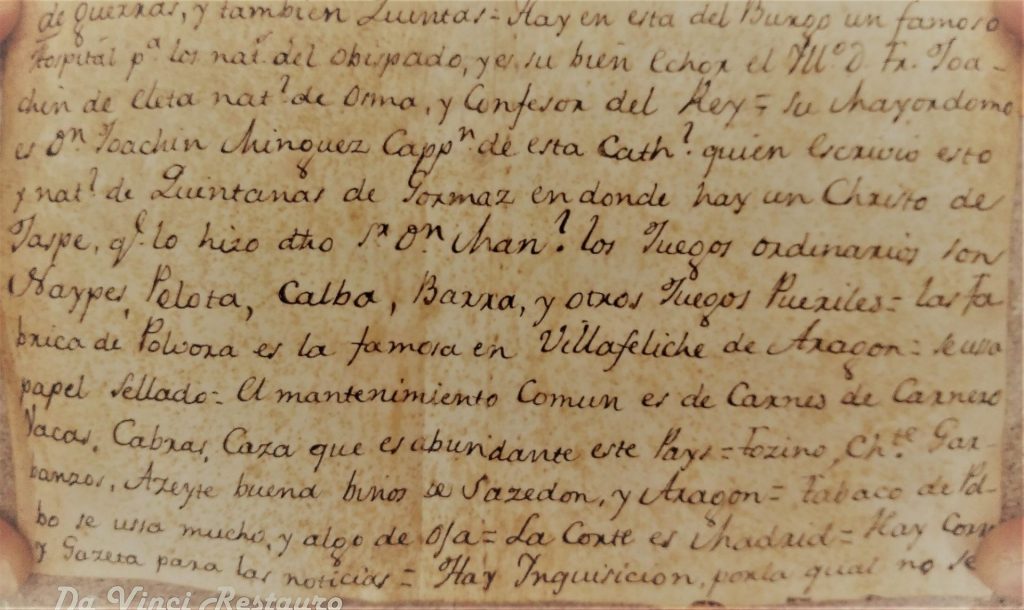 de guerras, y tambien Quintas = Hay en esta del Burgo un famoso
Hospital pª los nat.ˢ del obispado, y es su bien echor el Yllº D. Fr. Joa-
chin de Eleta nat.ˡ de Osma, y Confesor del Rey = su Mayordomo
es Dⁿ Joachin Minguez Cappⁿ de esta Cath.ˡ quien Escrivio esto
y nat.ˡ de Quintanas de Gormaz en donde hay un Christo de
Jaspe, q.ᵉ lo hizo dho Sʳ Dⁿ Man.ˡ los Juegos ordinarios son
Naypes, Pelota, Calba, Barra, y otros Juegos Pueriles = las Fa
brica de Polvora es la famosa en Villafeliche de Aragon = se usa
papel Sellado = El mantenimiento Comun es de Carnes de Carnero
Vacas, Cabras, Caza que es abundante este Pays = Tozino, Ch.ᵗᵉ Gar-
banzos, Azeyte buena binos de Sazedon, y Aragon = Tabaco de Pol-
bo se ussa mucho, y algo de Oja = La Corte es Madrid = Hay Corr
y Gazeta para las noticias = Hay Inquisicion, por la qual no se
Da Vinci Restauro